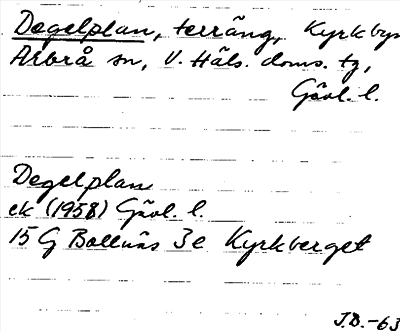 Degelplan, terräng, Kyrkbyn
Arbrå sn, V. Häls. doms. tg,
Gävl. l.
Degelplan
ek (1958) Gävl. l.
15 G Bollnäs 3e Kyrkberget
J.D.-63